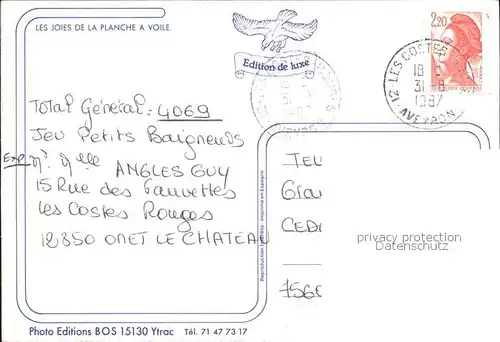 LES JOIES DE LA PLANCHE A VOILE.
Edition de luxe
2,20
12 - LES COSTES
18 H
31 - 8
1987
AVEYRON
Total Général : 4069
Jeu Petits Baigneurs
EXP. Mr. Mlle ANGLES GUY
15 Rue des Fauvettes
les Costes Rouges
12850 ONET LE CHATEAU
TEL
GRA
CED
privacy protection
Datenschutz
7566
Reproduction interdite - Imprimé en Espagne
Photo Editions BOS 15130 Ytrac Tél. 71 47 73 17